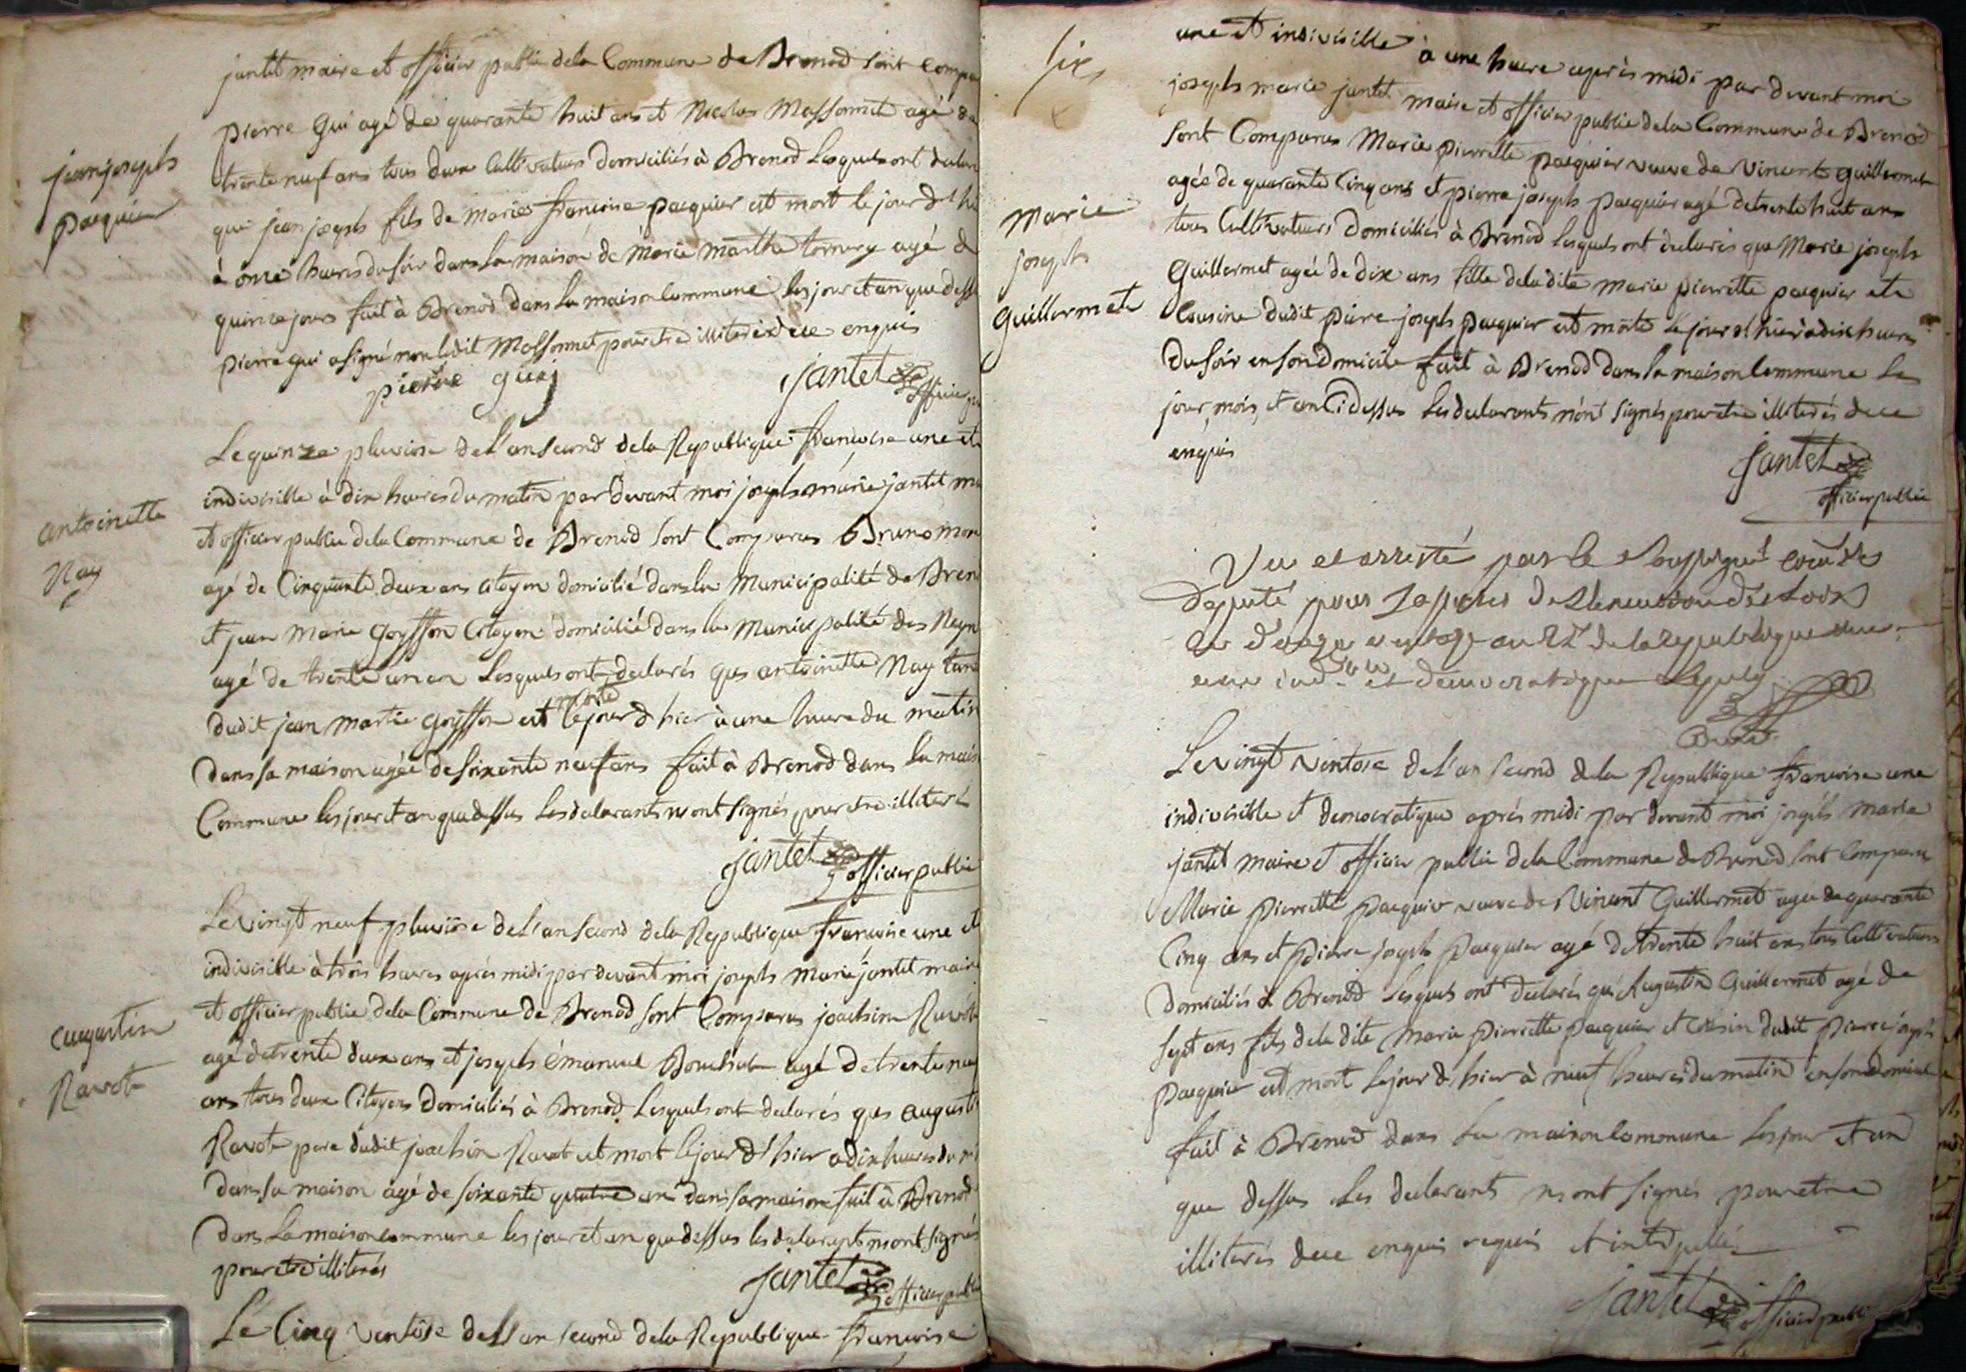 jantet maire et officier public dela Commune de Brenod sont compa
pierre Gui agé de quarante huit ans et Nicolas Massonnet agé de
trente neuf ans tous deux Cultivateurs domiciliés à Brenod Lesquels ont declar
jean joseph
pacquier
que jean joseph fils de marie françoise pacquier est mort le jour d'hi
à onze heures du soir dans la maison de marie marthe tornery agé de
quinze jours fait à Brenod dans la maison Commune les jour et an que dess
pierre gui a signé non ledit Massonnet pour etre illiteré de ce enquis
pierre guy
Jantet officier pu
Le quinze pluviose de L'an Second de la Republique françoise une et
indivisible à dix heures du matin par devant moi joseph marie jantet ma
antoinette
Nay
et officier public dela Commune de Brenod sont Comparus Bruno mon
agé de Cinquante deux ans citoyen domicilié dans la Municipalité de Bren
et jean Marie goyffon Citoyen domicilié dans la Municipalité des Neyr
agé de trente un an Lesquels ont declarés que antoinette Nay tan
dudit jean marie goyffon est morte le jour d'hier à une heure du matin
dans sa maison agée de soixante neuf ans fait à Brenod dans la mais
Commune les jour et an que dessus Les declarants n'ont signés pour etre illiterés
Jantet officier public
Le vingt neuf pluviôse de L'an Second de la Republique françoise une et
indivisible à trois heures aprés midi par devant moi joseph marie jantet maire
et officier public dela Commune de Brenod sont Comparus joachim Ravot
augustin
Ravot
agé de trente deux ans et joseph émanuel Bouchat agé de trente neuf
ans tous deux Citoyens domiciliés à Brenod Lesquels ont declarés que august
Ravot pere dudit joachim Ravot est mort le jour d'hier a dix heures du
dans sa maison agé de soixante quatre ans dans sa maison fait à Brenod
dans La maison commune les jour et an que dessus les declarants n'ont signés
pour etre illiterés
Jantet officier public
Le Cinq ventôse de L'an second de la Republique françoise
six
une et indivisible à une heure aprés midi par devant moi
joseph marie jantet maire et officier public dela Commune de Brenod
sont Comparus Marie pierrette pacquier veuve de Vincent guillermet
agée de quarante Cinq ans et pierre joseph pacquier agé de trente huit ans
marie
joseph
guillermet
tous Cultivateurs domiciliés à Brenod lesquels ont declarés que Marie joseph
Guillermet agée de dix ans fille de ladite marie pierrette pacquier et
Cousine dudit pierre joseph pacquier est morte le jour d'hier à dix heures
du soir en son domicile fait à Brenod dans la maison Commune Les
jour, mois, et an Cidessus Les declarants n'ont signés pour etre illiterés de ce
enquis
Jantet
officier public
Vu et arresté par le soussigné
deputé pour de L'execution des Loix
de la republique une
ind.ble et democratique
Le vingt Ventose de L'an second dela Republique françoise une
indivisible et democratique aprés midi par devant moi joseph marie
jantet maire et officier public dela Commune de Brenod sont Comparus
Marie pierrette pacquier veuve de Vincent Guillermet agée de quarante
Cinq ans et pierre joseph pacquier agé de trente huit ans tous Cultivateurs
domiciliés à Brenod Lesquels ont declarés que Augustin Guillermet agé de
sept ans fils de la dite Marie pierrette pacquier et Cousin dudit pierre joseph
pacquier est mort le jour d'hier à neuf heures du matin en son domicile
fait à Brenod dans la maison Commune les jour et an
que dessus Les declarants n'ont signés pour etre
illiterés de ce enquis requis et interpellés
Jantet officier public